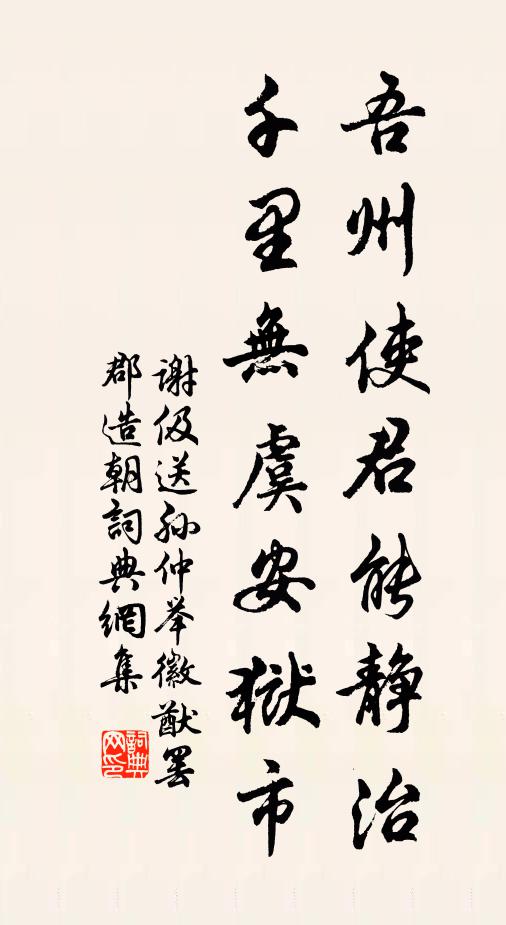 吾州使君能静治
千里無虞安獄市
謝伋送孙仲举徽猷罢
郡造朝詞典網集
詞典网印